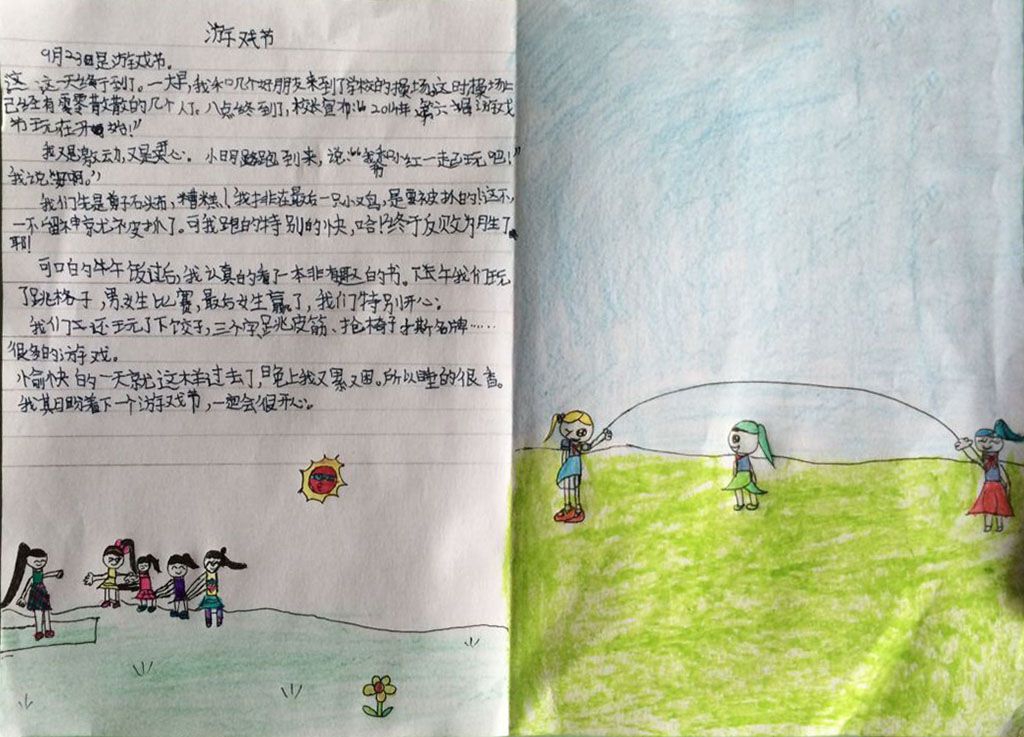 游戏节
9月23日是游戏节。
这 这一天终于到了。一大早,我和几个好朋友来到了学校的操场,这时操场上
已经有零零散散的几个人了。八点终到了,校长宣布:“2014年 第六届游戏
节现在开始!”
我又是激动,又是开心。小明跑到来,说:“我和小红一起玩吧!”
我说“好啊。”
我们先是剪子石头布,糟糕!我排在最后一只小鸡,是要被抓的!这不,
一不留神就被抓了。可我跑的特别的快,哈!终于反败为胜了。
耶!
可口的牛午饭过后,我认真的看了一本非有趣的书。下午我们玩
了跳格子,男女生比赛,最后女生赢了,我们特别开心。
我们还玩了下饺子,三个字跳皮筋、抢椅子才斯名牌……
很多的游戏。
愉快的一天就这样过去了,晚上我又累又困。所以睡的很香。
我其日盼着下一个游戏节,一定会很开心。